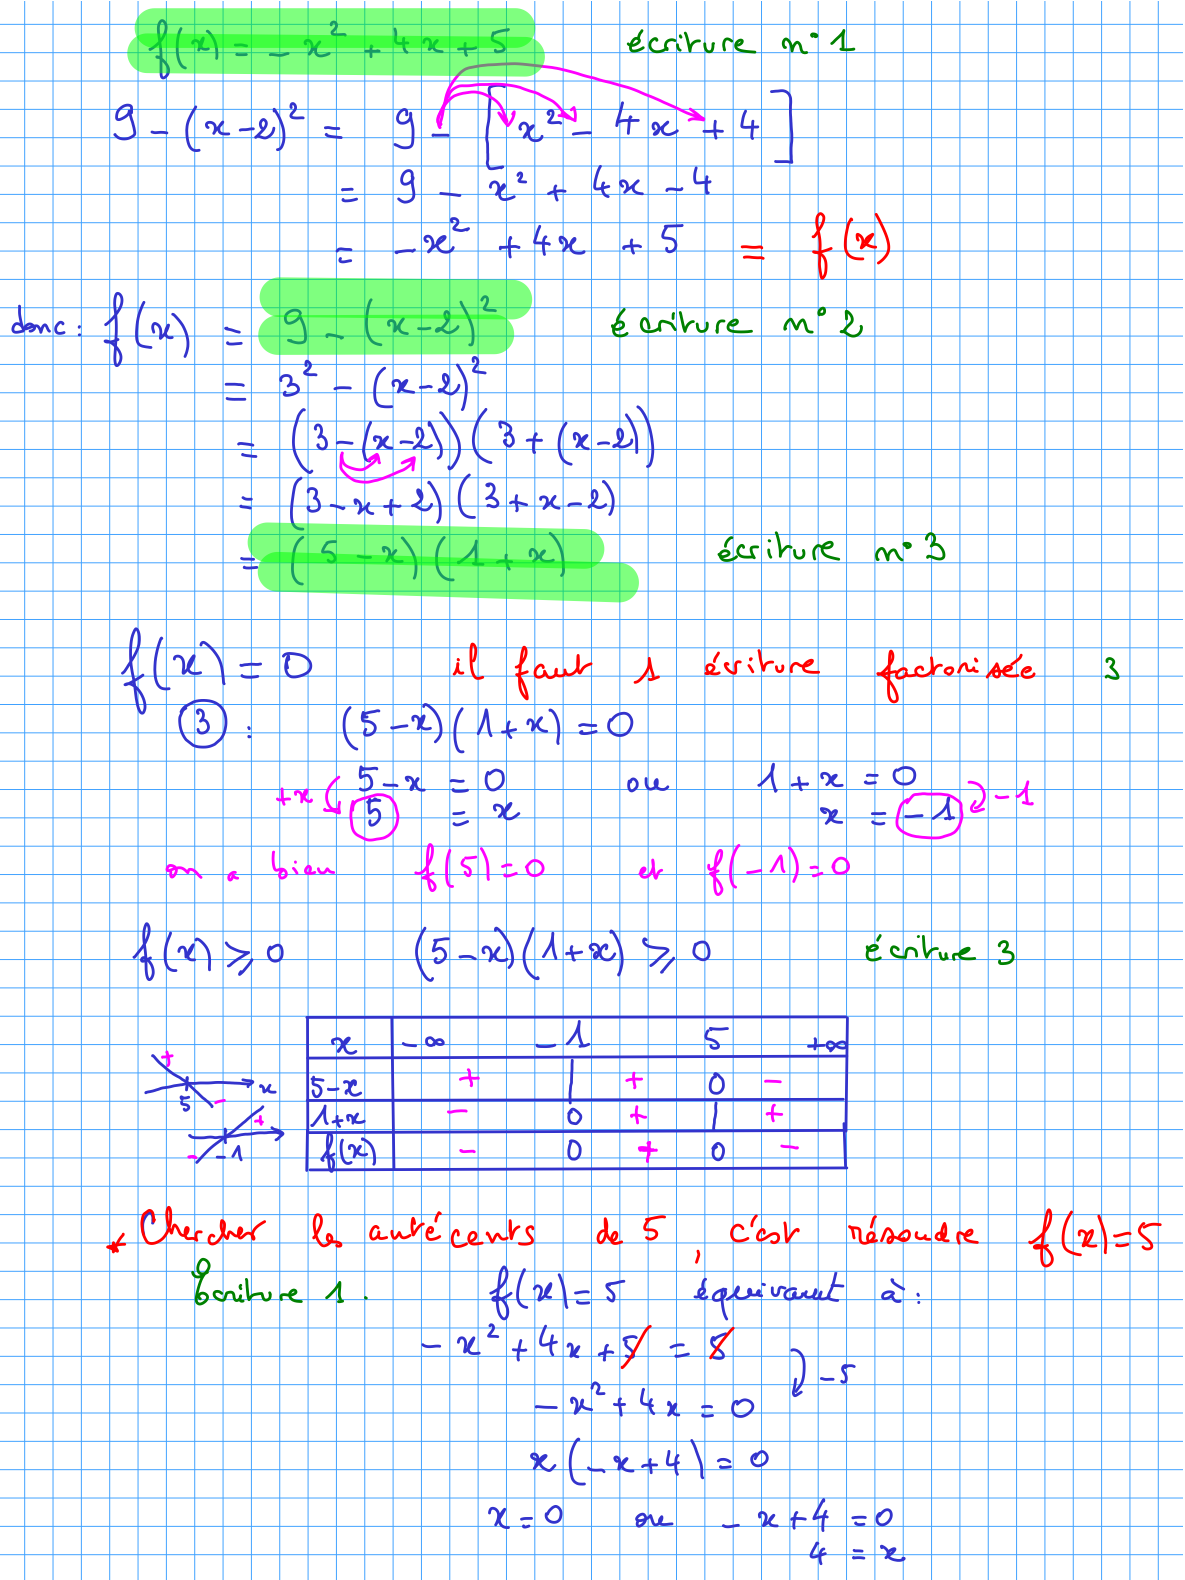 f(x) = - x² + 4x + 5 écriture n°1
9 - (x-2)² = 9 - [x² - 4x + 4]
= 9 - x² + 4x - 4
= -x² + 4x + 5 = f(x)
donc : f(x) = 9 - (x-2)² écriture n°2
= 3² - (x-2)²
= (3-(x-2))(3+(x-2))
= (3-x+2)(3+x-2)
= (5-x)(1+x) écriture n°3
f(x) = 0 il faut 1 écriture factorisée 3
③ : (5-x)(1+x) = 0
5-x = 0 ou 1+x = 0
+x 5 = x x = -1 -1
on a bien f(5)=0 et f(-1)=0
f(x) ⩾ 0 (5-x)(1+x) ⩾ 0 écriture 3
x -∞ -1 5 +∞
+ 5 - x 5-x + | + 0 -
+ - -1 1+x - 0 + | +
f(x) - 0 + 0 -
* Chercher les antécents de 5, c'est résoudre f(x)=5
Ecriture 1. f(x)=5 équivaut à :
- x² + 4x + 5 = 5
-5
- x² + 4x = 0
x(-x+4) = 0
x=0 ou -x+4 = 0
4 = x